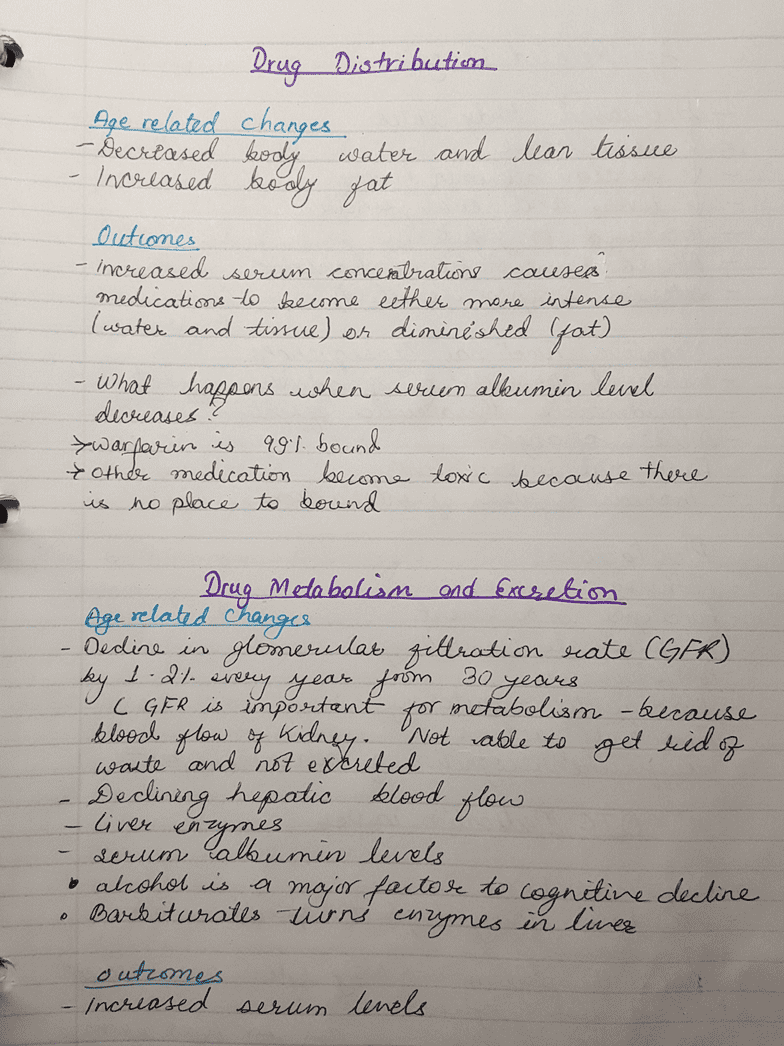 Drug Distribution
Age related changes
- Decreased body water and lean tissue
- Increased body fat
Outcomes
- increased serum concentrations causes
medications to become either more intense
(water and tissue) or diminished (fat)
- What happens when serum albumin level
decreases?
→ warfarin is 99% bound
→ other medication become toxic because there
is no place to bound
Drug Metabolism and Excretion
Age related changes
- Decline in glomerular filtration rate (GFR)
by 1-2% every year from 30 years
( GFR is important for metabolism - because
blood flow of kidney. Not able to get rid of
waste and not excreted
- Declining hepatic blood flow
- liver enzymes
- serum albumin levels
• alcohol is a major factor to cognitive decline
• Barbiturates turns enzymes in liver
outcomes
- increased serum levels